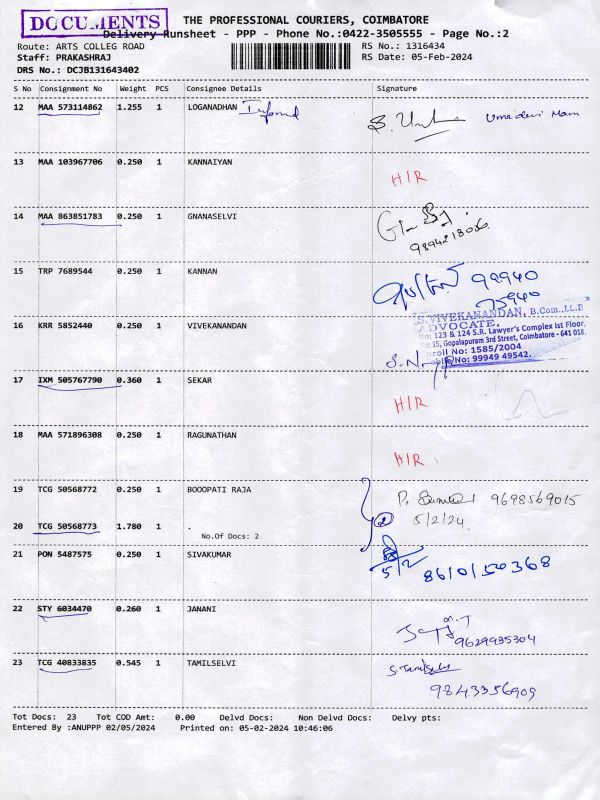 DOCUMENTS
THE PROFESSIONAL COURIERS, COIMBATORE
Delivery Runsheet - PPP - Phone No.:0422-3505555 - Page No.:2
Route: ARTS COLLEG ROAD
RS No.: 1316434
Staff: PRAKASHRAJ
RS Date: 05-Feb-2024
DRS No.: DCJB131643402
S No Consignment No Weight PCS Consignee Details Signature
12 MAA 573114862 1.255 1 LOGANADHAN Umadevi Mam
13 MAA 103967706 0.250 1 KANNAIYAN H/R
14 MAA 863851783 0.250 1 GNANASELVI
15 TRP 7689544 0.250 1 KANNAN 99940
75940
16 KRR 5852440 0.250 1 VIVEKANANDAN
S.VIVEKANANDAN, B.Com.,LL.B
ADVOCATE,
No: 123 & 124 S.R. Lawyer's Complex Ist Floor,
15, Gopalapuram 3rd Street, Coimbatore - 641 018.
Enroll No: 1585/2004
No: 99949 49542.
17 IXM 505767790 0.360 1 SEKAR H/R
18 MAA 571896308 0.250 1 RAGUNATHAN H/R
19 TCG 50568772 0.250 1 BOOOPATI RAJA 9698569015
5/2/24
20 TCG 50568773 1.780 1 .
No.Of Docs: 2
21 PON 5487575 0.250 1 SIVAKUMAR
5/2 8610150368
22 STY 6034470 0.260 1 JANANI
9629935304
23 TCG 40833835 0.545 1 TAMILSELVI S.Tamilselvi
9843356909
Tot Docs: 23 Tot COD Amt: 0.00 Delvd Docs: Non Delvd Docs: Delvy pts:
Entered By :ANUPPP 02/05/2024 Printed on: 05-02-2024 10:46:06